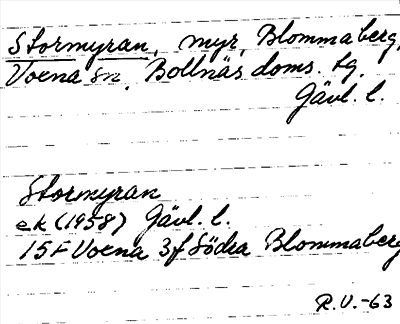 Stormyran, myr, Blommaberg,
Voxna sn, Bollnäs doms. tg.
Gävl. l.
Stormyran
ek (1958) Gävl. l.
15F Voxna 3f Södra Blommaberg
R.V.-63